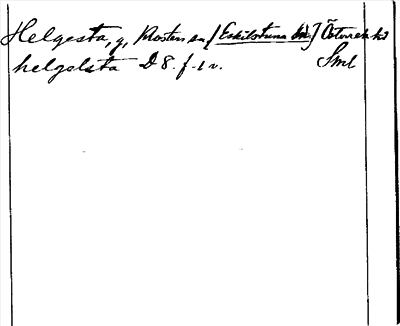 Helgesta, g, Klosters sn [Eskilstuna kn] Österrek. hd
helgelsta D 8. f. 1 v. Sml